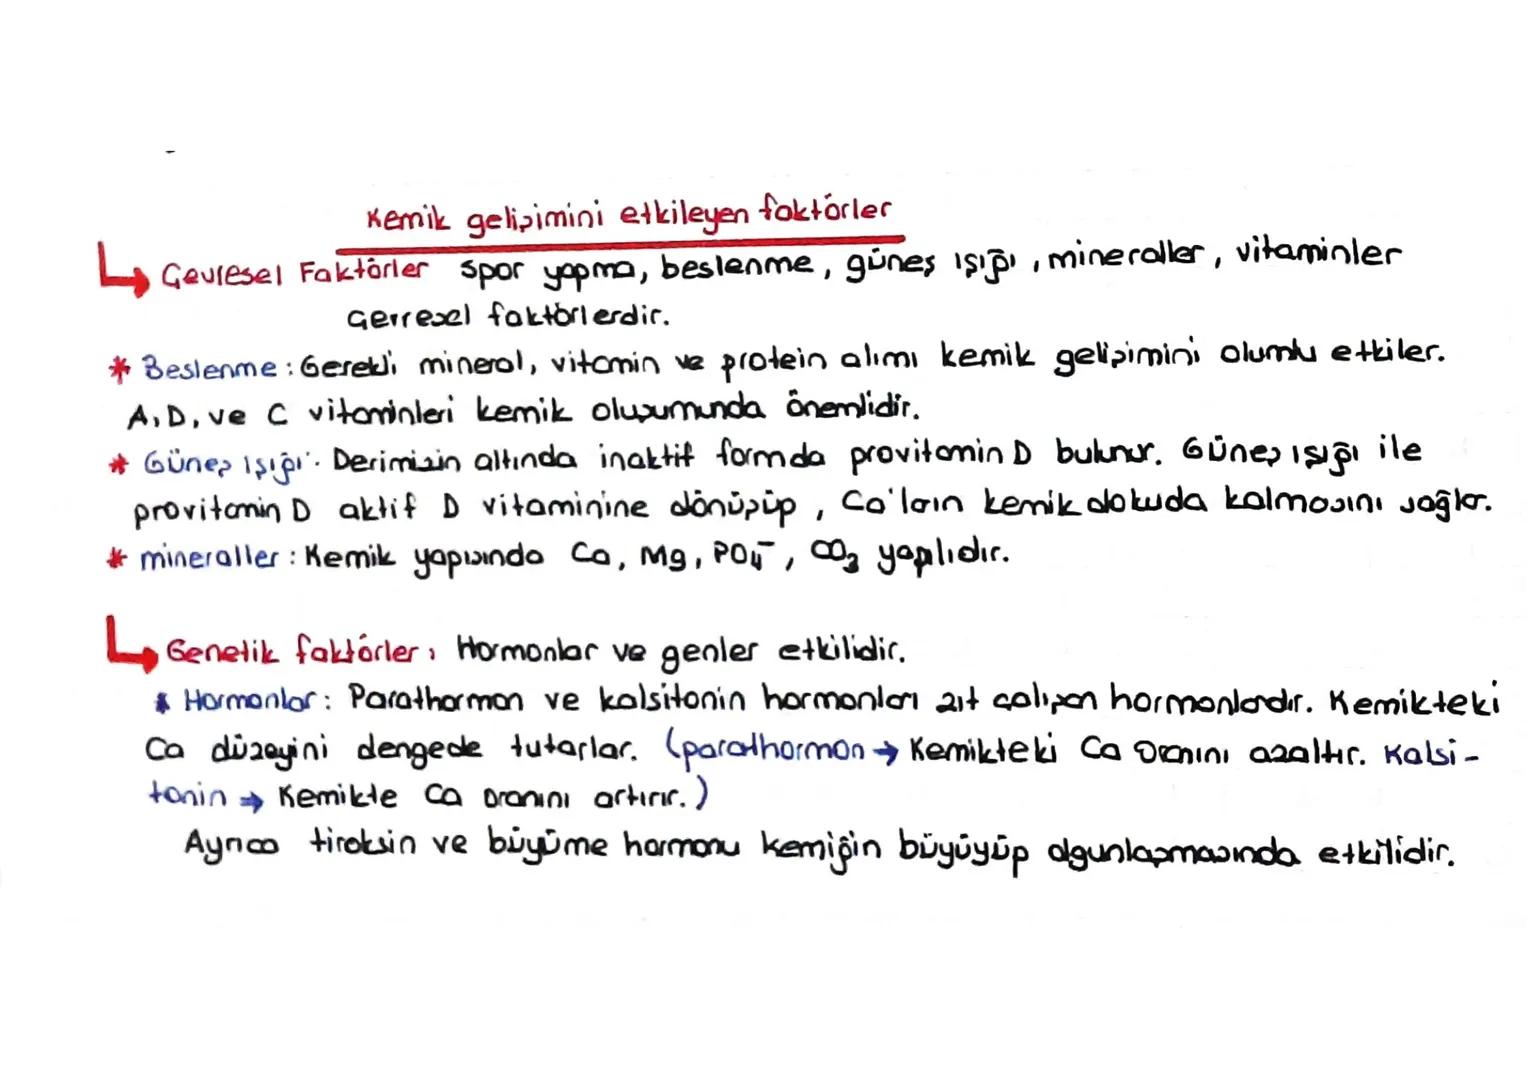 Kemik gelişimini etkileyen faktörler
Çevresel Faktörler spor yapma, beslenme, güneş ışığı, mineraller, vitaminler
çevresel faktörlerdir.
* Beslenme: Gerekli mineral, vitamin ve protein alımı kemik gelişimini olumlu etkiler.
A, D, ve C vitaminleri kemik oluşumunda önemlidir.
* Güneş ışığı: Derimizin altında inaktif formda provitamin D bulunur. Güneş ışığı ile
provitamin D aktif D vitaminine dönüşüp, Ca'ların kemik dokuda kalmasını sağlar.
* mineraller: Kemik yapısında Ca, Mg, PO₄⁻, CO₃ yapılıdır.
Genetik faktörler: Hormonlar ve genler etkilidir.
* Hormonlar: Parathormon ve kalsitonin hormonları zıt çalışan hormonlardır. Kemikteki
Ca düzeyini dengede tutarlar. (parathormon → Kemikteki Ca oranını azaltır. Kalsi-
tonin → Kemikte Ca oranını artırır.)
Ayrıca tiroksin ve büyüme hormonu kemiğin büyüyüp olgunlaşmasında etkilidir.